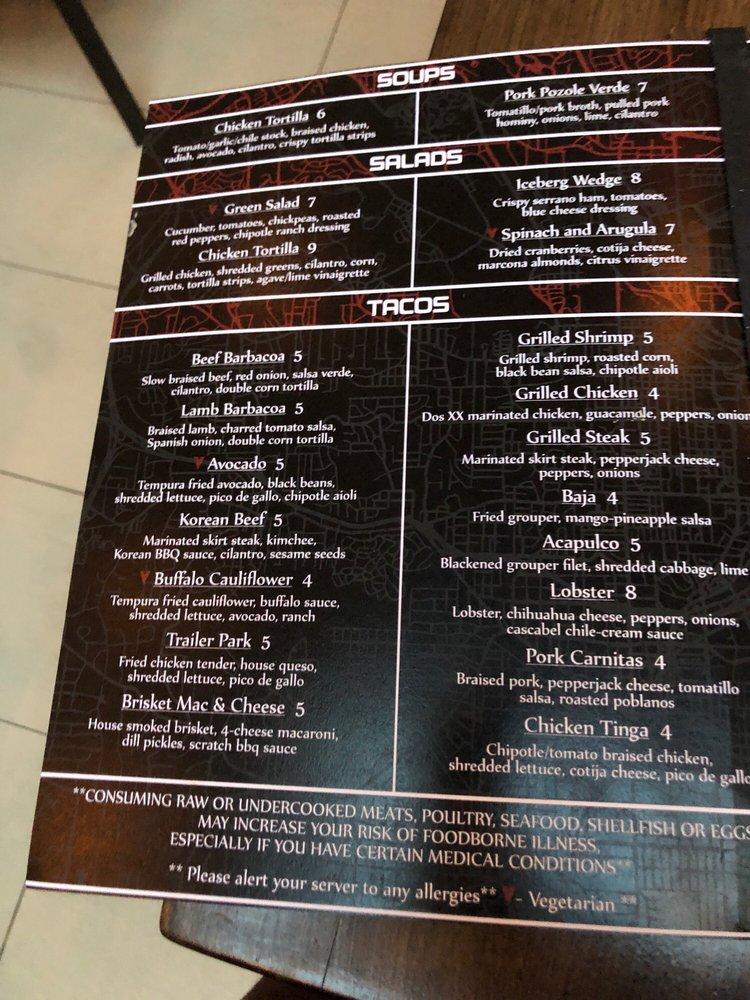 SOUPS
Chicken Tortilla 6
Tomato/garlic/chile stock, braised chicken,
radish, avocado, cilantro, crispy tortilla strips
Pork Pozole Verde 7
Tomatillo/pork broth, pulled pork
hominy, onions, lime, cilantro
SALADS
Green Salad 7
Cucumber, tomatoes, chickpeas, roasted
red peppers, chipotle ranch dressing
Chicken Tortilla 9
Grilled chicken, shredded greens, cilantro, corn,
carrots, tortilla strips, agave/lime vinaigrette
Iceberg Wedge 8
Crispy serrano ham, tomatoes,
blue cheese dressing
Spinach and Arugula 7
Dried cranberries, cotija cheese,
marcona almonds, citrus vinaigrette
TACOS
Beef Barbacoa 5
Slow braised beef, red onion, salsa verde,
cilantro, double corn tortilla
Lamb Barbacoa 5
Braised lamb, charred tomato salsa,
Spanish onion, double corn tortilla
Avocado 5
Tempura fried avocado, black beans,
shredded lettuce, pico de gallo, chipotle aioli
Korean Beef 5
Marinated skirt steak, kimchee,
Korean BBQ sauce, cilantro, sesame seeds
Buffalo Cauliflower 4
Tempura fried cauliflower, buffalo sauce,
shredded lettuce, avocado, ranch
Trailer Park 5
Fried chicken tender, house queso,
shredded lettuce, pico de gallo
Brisket Mac & Cheese 5
House smoked brisket, 4-cheese macaroni,
dill pickles, scratch bbq sauce
Grilled Shrimp 5
Grilled shrimp, roasted corn,
black bean salsa, chipotle aioli
Grilled Chicken 4
Dos XX marinated chicken, guacamole, peppers, onion
Grilled Steak 5
Marinated skirt steak, pepperjack cheese,
peppers, onions
Baja 4
Fried grouper, mango-pineapple salsa
Acapulco 5
Blackened grouper filet, shredded cabbage, lime
Lobster 8
Lobster, chihuahua cheese, peppers, onions,
cascabel chile-cream sauce
Pork Carnitas 4
Braised pork, pepperjack cheese, tomatillo
salsa, roasted poblanos
Chicken Tinga 4
Chipotle/tomato braised chicken,
shredded lettuce, cotija cheese, pico de gallo
**CONSUMING RAW OR UNDERCOOKED MEATS, POULTRY, SEAFOOD, SHELLFISH OR EGGS
MAY INCREASE YOUR RISK OF FOODBORNE ILLNESS,
ESPECIALLY IF YOU HAVE CERTAIN MEDICAL CONDITIONS**
** Please alert your server to any allergies** ♥- Vegetarian **